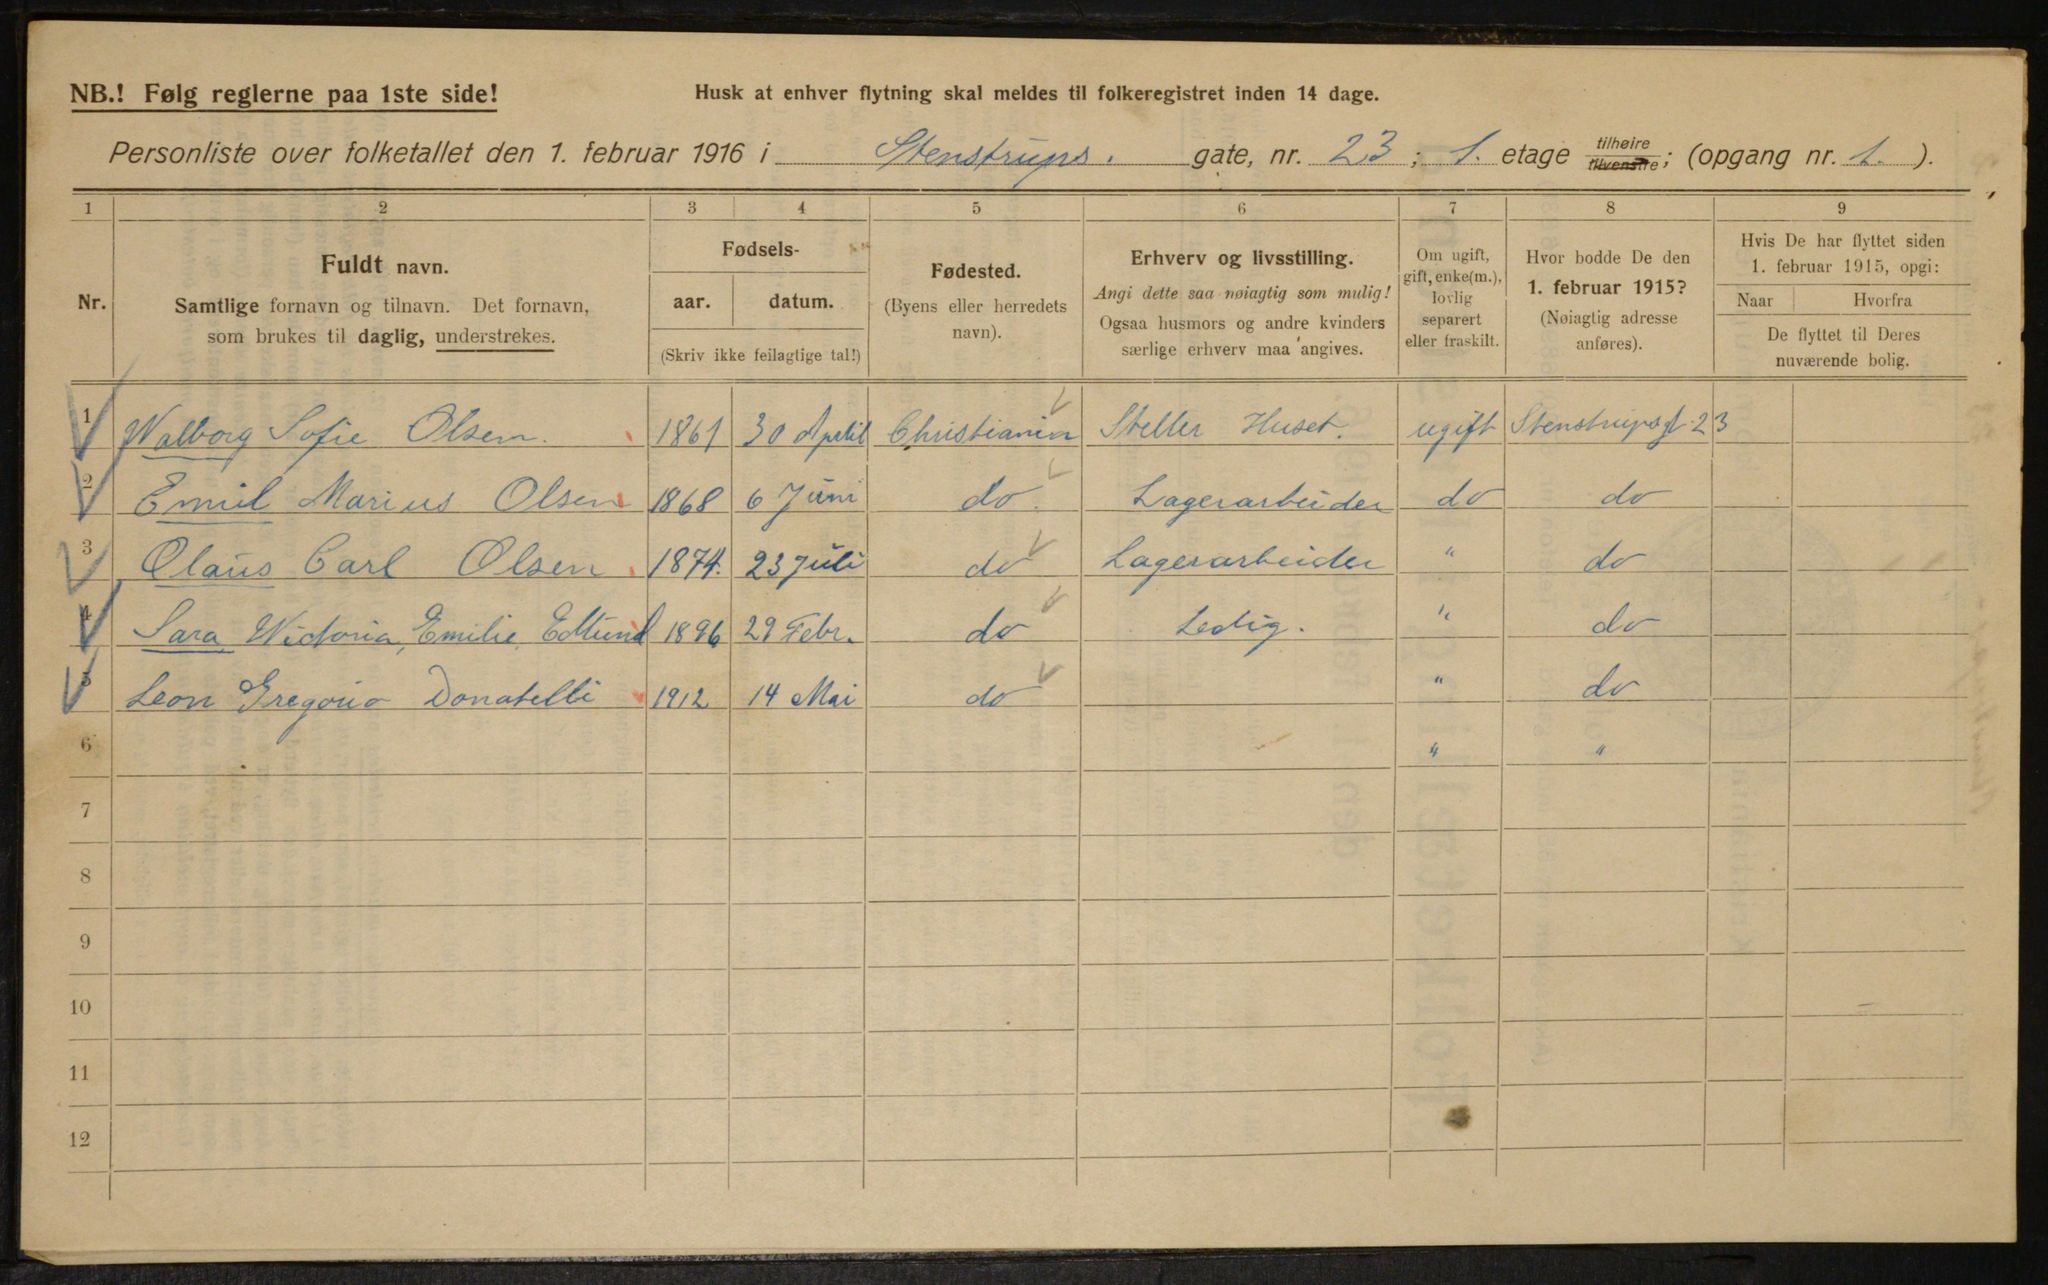 NB.! Følg reglerne paa 1ste side!
Husk at enhver flytning skal meldes til folkeregistret inden 14 dage.
Personliste over folketallet den 1. februar 1916 i Stenstrups. gate, nr. 23; 1. etage tilhøire tilvenstre; (opgang nr. 1.).
1 2 3 4 5 6 7 8 9
Nr.
Fuldt navn.
Samtlige fornavn og tilnavn. Det fornavn,
som brukes til daglig, understrekes.
Fødsels-
aar. datum.
(Skriv ikke feilagtige tal!)
Fødested.
(Byens eller herredets
navn).
Erhverv og livsstilling.
Angi dette saa nøiagtig som mulig!
Ogsaa husmors og andre kvinders
særlige erhverv maa angives.
Om ugift,
gift, enke(m.),
lovlig
separert
eller fraskilt.
Hvor bodde De den
1. februar 1915?
(Nøiagtig adresse
anføres).
Hvis De har flyttet siden
1. februar 1915, opgi:
Naar Hvorfra
De flyttet til Deres
nuværende bolig.
1 Walborg Sofie Olsen. 1861 30 April Christiania Steller Huset. ugift Stenstrupsgt 23
2 Emil Marius Olsen 1868 6 Juni do. Lagerarbeider do do
3 Olaus Carl Olsen 1874. 23 Juli do Lagerarbeider " do
4 Sara, Wictoria, Emilie, Edlund 1896 29 Febr. do Ledig. " do
5 Leon Gregorio Donatelli 1912 14 Mai do " do
6 " "
7
8
9
10
11
12